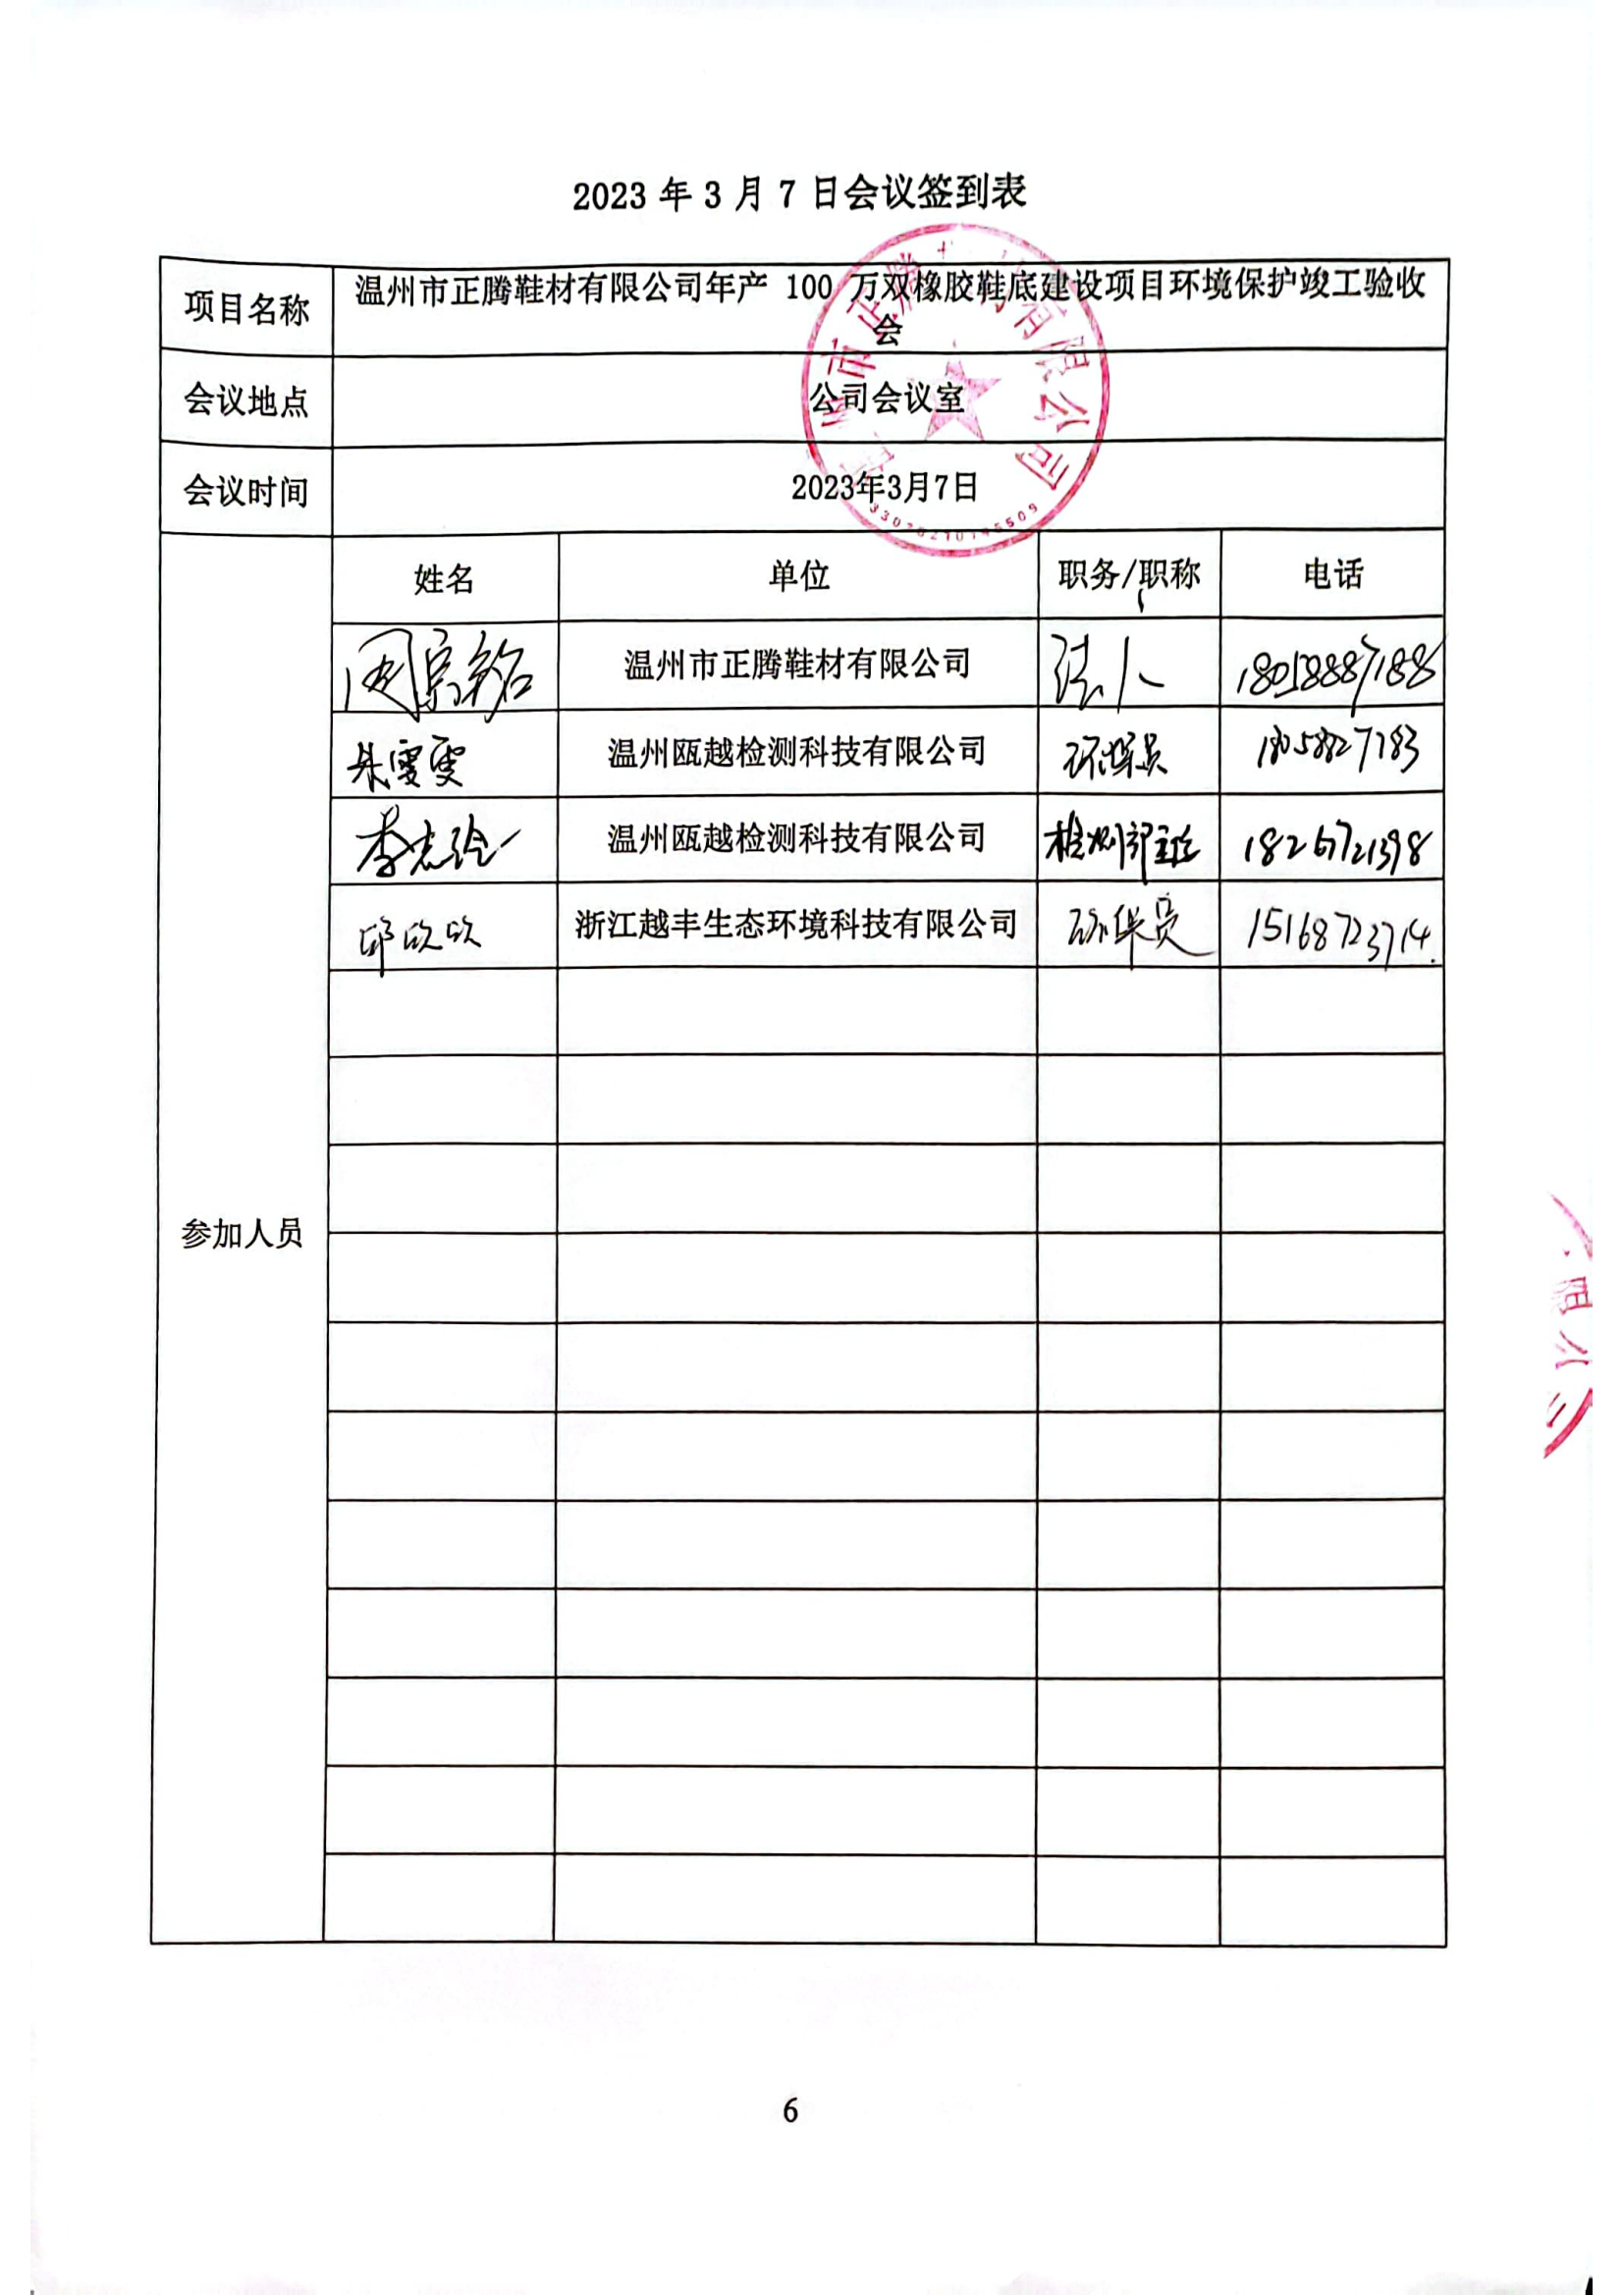 2023 年 3 月 7 日会议签到表
项目名称
温州市正腾鞋材有限公司年产 100 万双橡胶鞋底建设项目环境保护竣工验收
会
会议地点
公司会议室
会议时间
2023年3月7日
参加人员
姓名 单位 职务/职称 电话
温州市正腾鞋材有限公司 法人 18058887188
朱雯雯 温州瓯越检测科技有限公司 18058827183
李志 温州瓯越检测科技有限公司 检测部主任 18267721398
邱欣欣 浙江越丰生态环境科技有限公司 环保员 15168723714
市正腾 有限公司
6